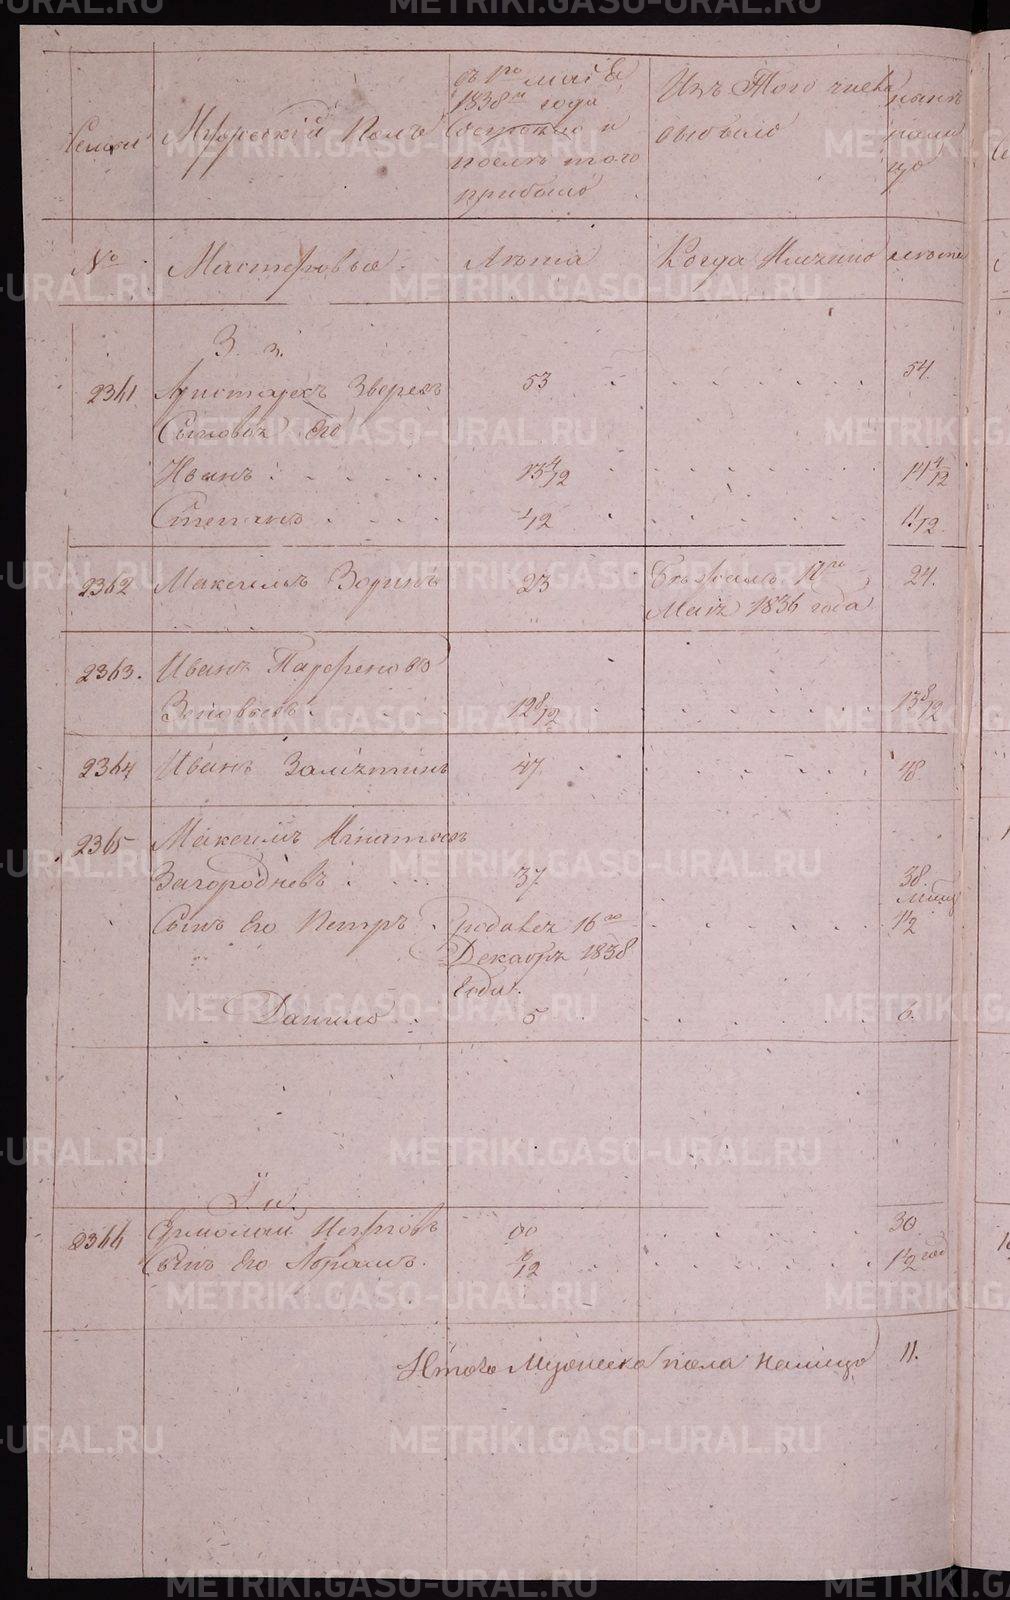 Семьи
Мужеский Полъ
съ 1го маiя
1838го года
Состояло и
послѣ того
прибыло
Изъ Того числа
выбыло
нынѣ
нали
цо
№
Мастеровые
Лѣта
Когда Имянно
лѣта
З. з.
2361 Аристархъ Зверевъ 53 54.
Сыновья Его
Иванъ 13 4/12 14 4/12
Степанъ /12 1/12
2362 Максимъ Зоринъ 23 Бѣжалъ 17го 24.
Маiя 1836 года
2363. Иванъ Парфеновъ
Зиновьевъ 12 8/12 13 8/12
2364 Иванъ Замятинъ 47 48
2365 Максимъ Игнатьевъ
Загородневъ 37 38.
Сынъ Его Петръ родался 16го 1/2
Декабря 1838
Года.
Данило 5 6.
I. и.
2366 Ермолай Игнтовъ 30
Сынъ Его Абрамъ. /12 1/2 год
Итого Мужеска пола налицо 11.
METRIKI.GASO-URAL.RU